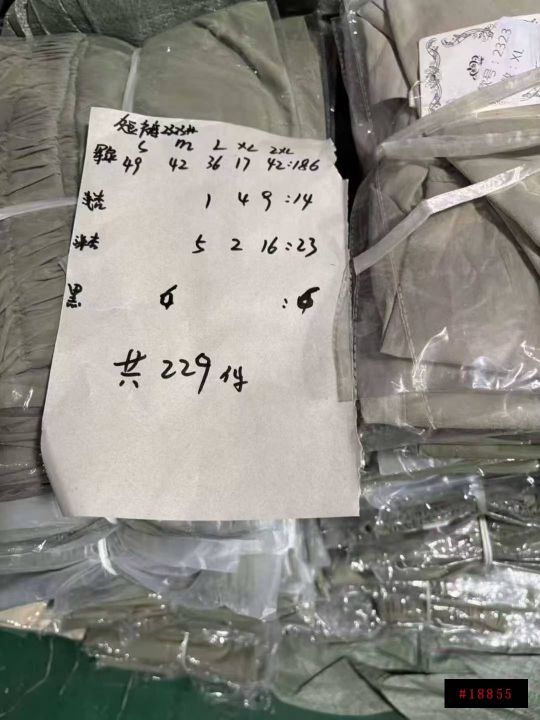 短裤2323#
S M L XL 2XL
军绿 49 42 36 17 42:186
1 4 9 :14
5 2 16:23
黑 6 :6
共 229 件
号:2323
XL
#18855